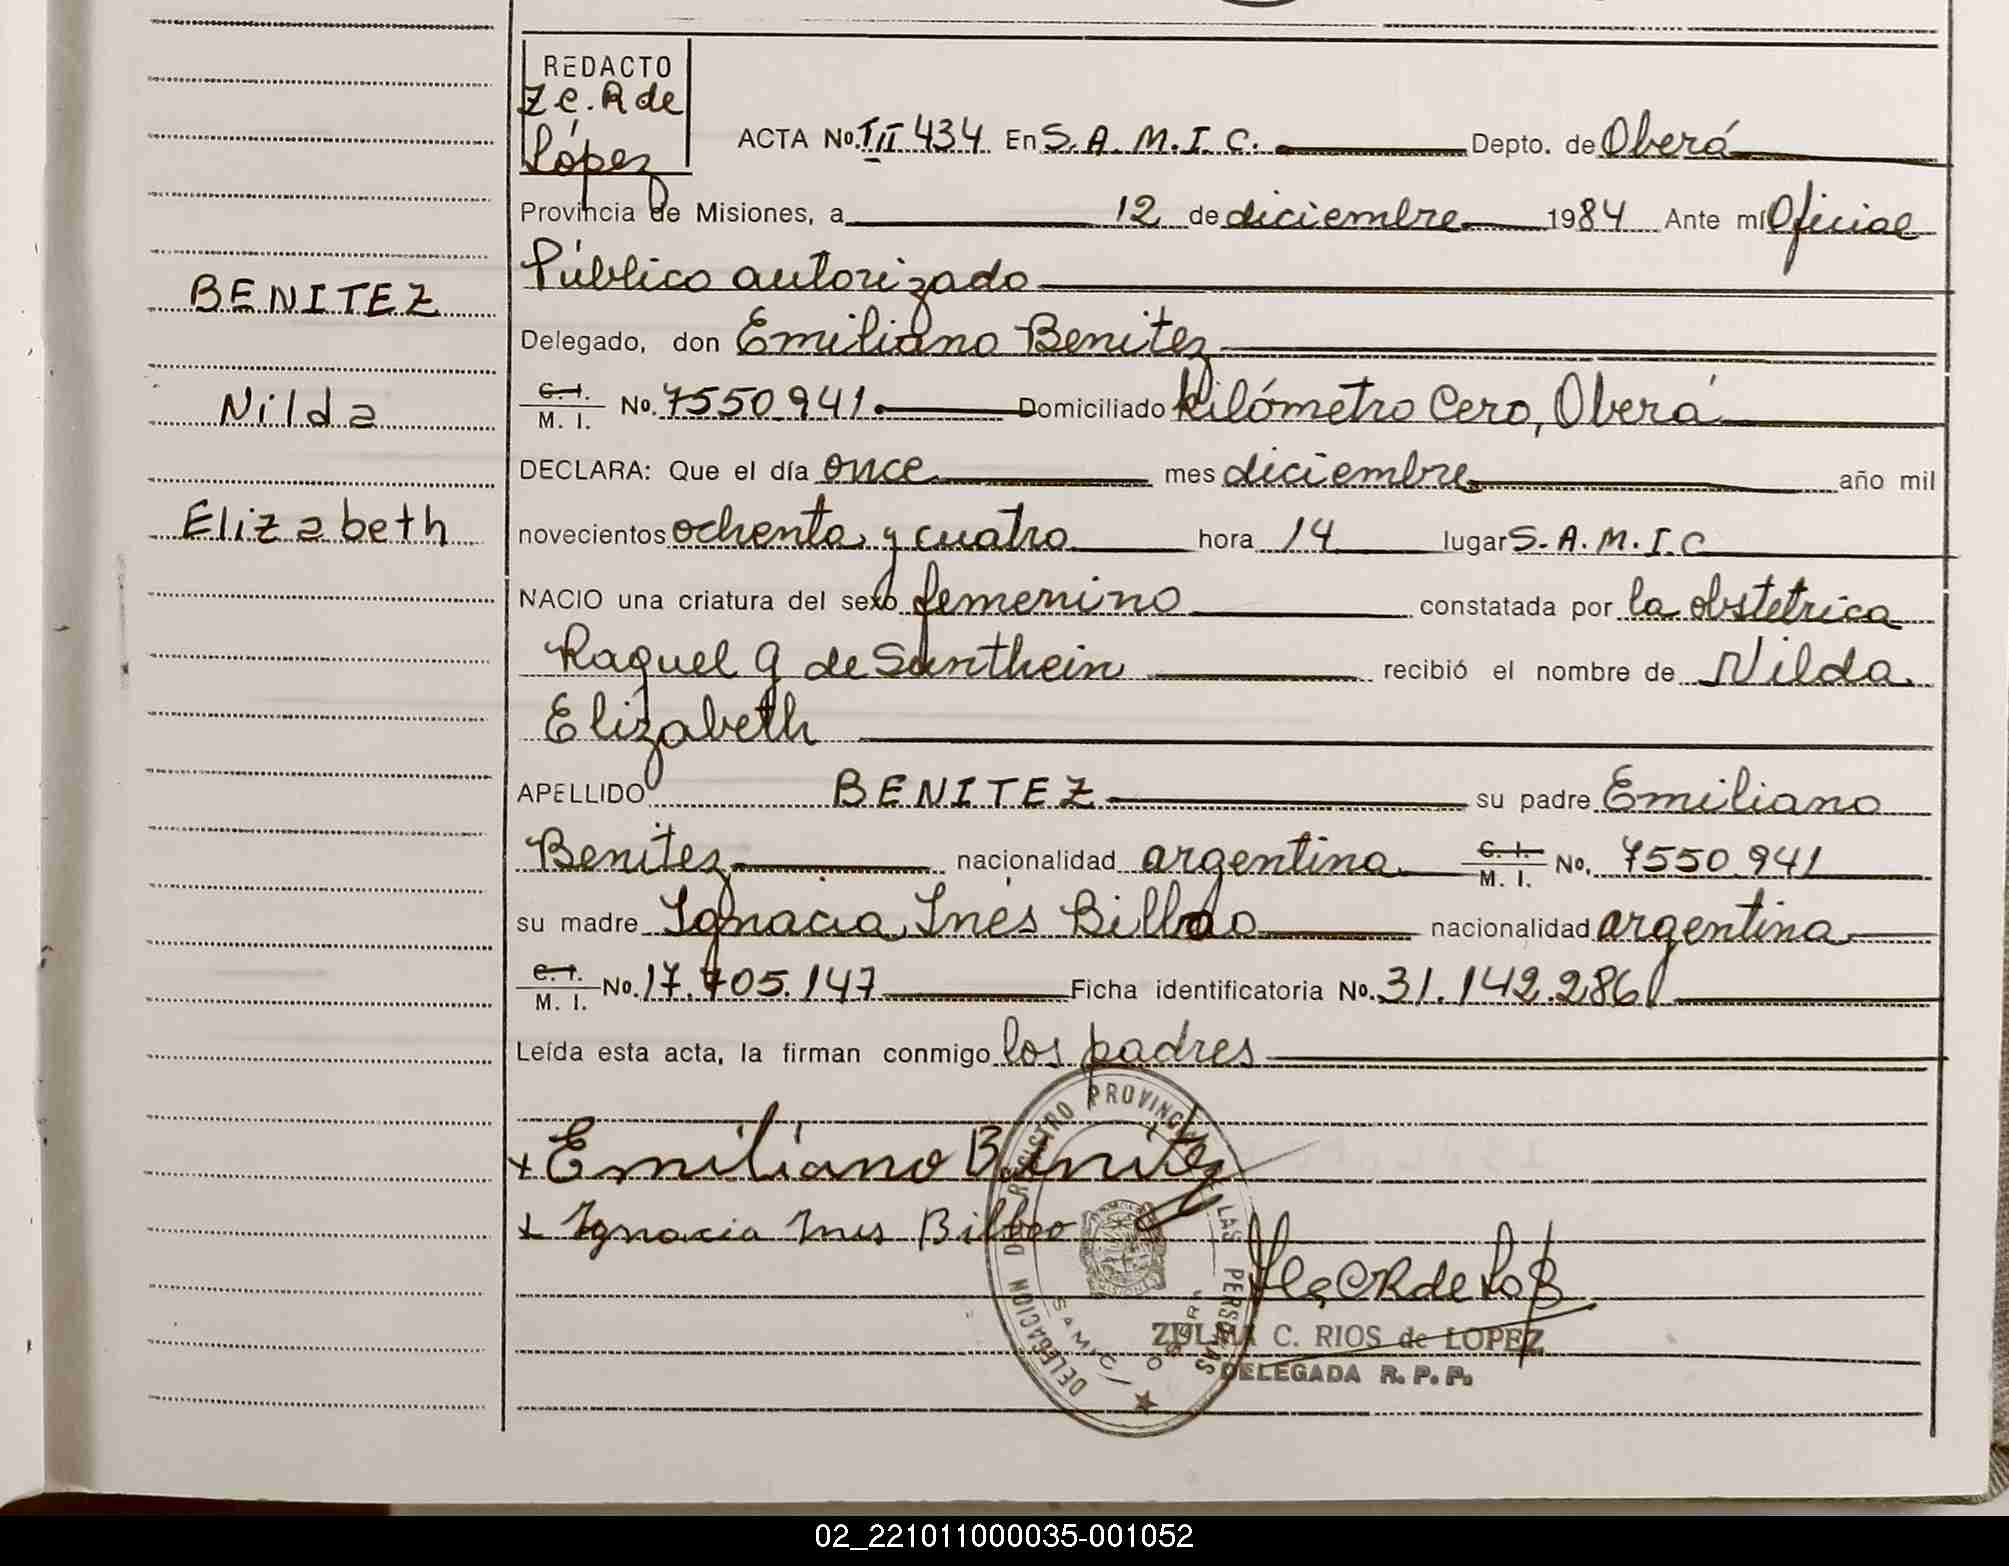 REDACTO
Z C. R de
López
ACTA No. III 434 En S. A. M. I. C. Depto. de Oberá
Provincia de Misiones, a 12 de diciembre 1984 Ante mí Oficial
Público autorizado
BENITEZ
Delegado, don Emiliano Benitez
Nilda
C. I.
M. I. No. 7550.941. Domiciliado Kilómetro Cero, Oberá
DECLARA: Que el día once mes diciembre año mil
Elizabeth
novecientos ochenta y cuatro hora 14 lugar S. A. M. I. C
NACIO una criatura del sexo femenino constatada por la obstetrica
Raquel G de Santhein recibió el nombre de Nilda
Elizabeth
APELLIDO BENITEZ su padre Emiliano
Benitez nacionalidad argentina C. I.
M. I. No. 7550.941
su madre Ignacia Inés Bilbao nacionalidad argentina
C. I.
M. I. No. 17.705.147 Ficha identificatoria No. 31.142.286
Leída esta acta, la firman conmigo los padres
x Emiliano Benitez
x Ignacia Ines Bilbao
DELEGACION DEL REGISTRO PROVINCIAL DE LAS PERSONAS
SAMIC / OBERA
ZULMA C. RIOS de LOPEZ
DELEGADA R. P. P.
02_221011000035-001052